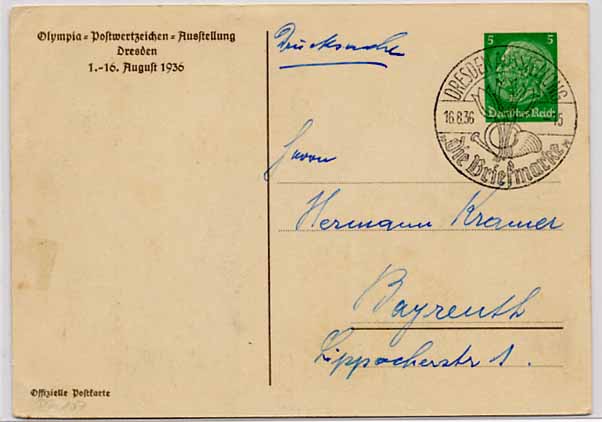 Olympia-Postwertzeichen-Ausstellung
Dresden
1.-16. August 1936
Drucksache
5 5
Deutsches Reich
DRESDEN AUSSTELLUNG
16.8.36
"die Briefmarke"
Herrn
Hermann Kramer
Bayreuth
1.
Offizielle Postkarte